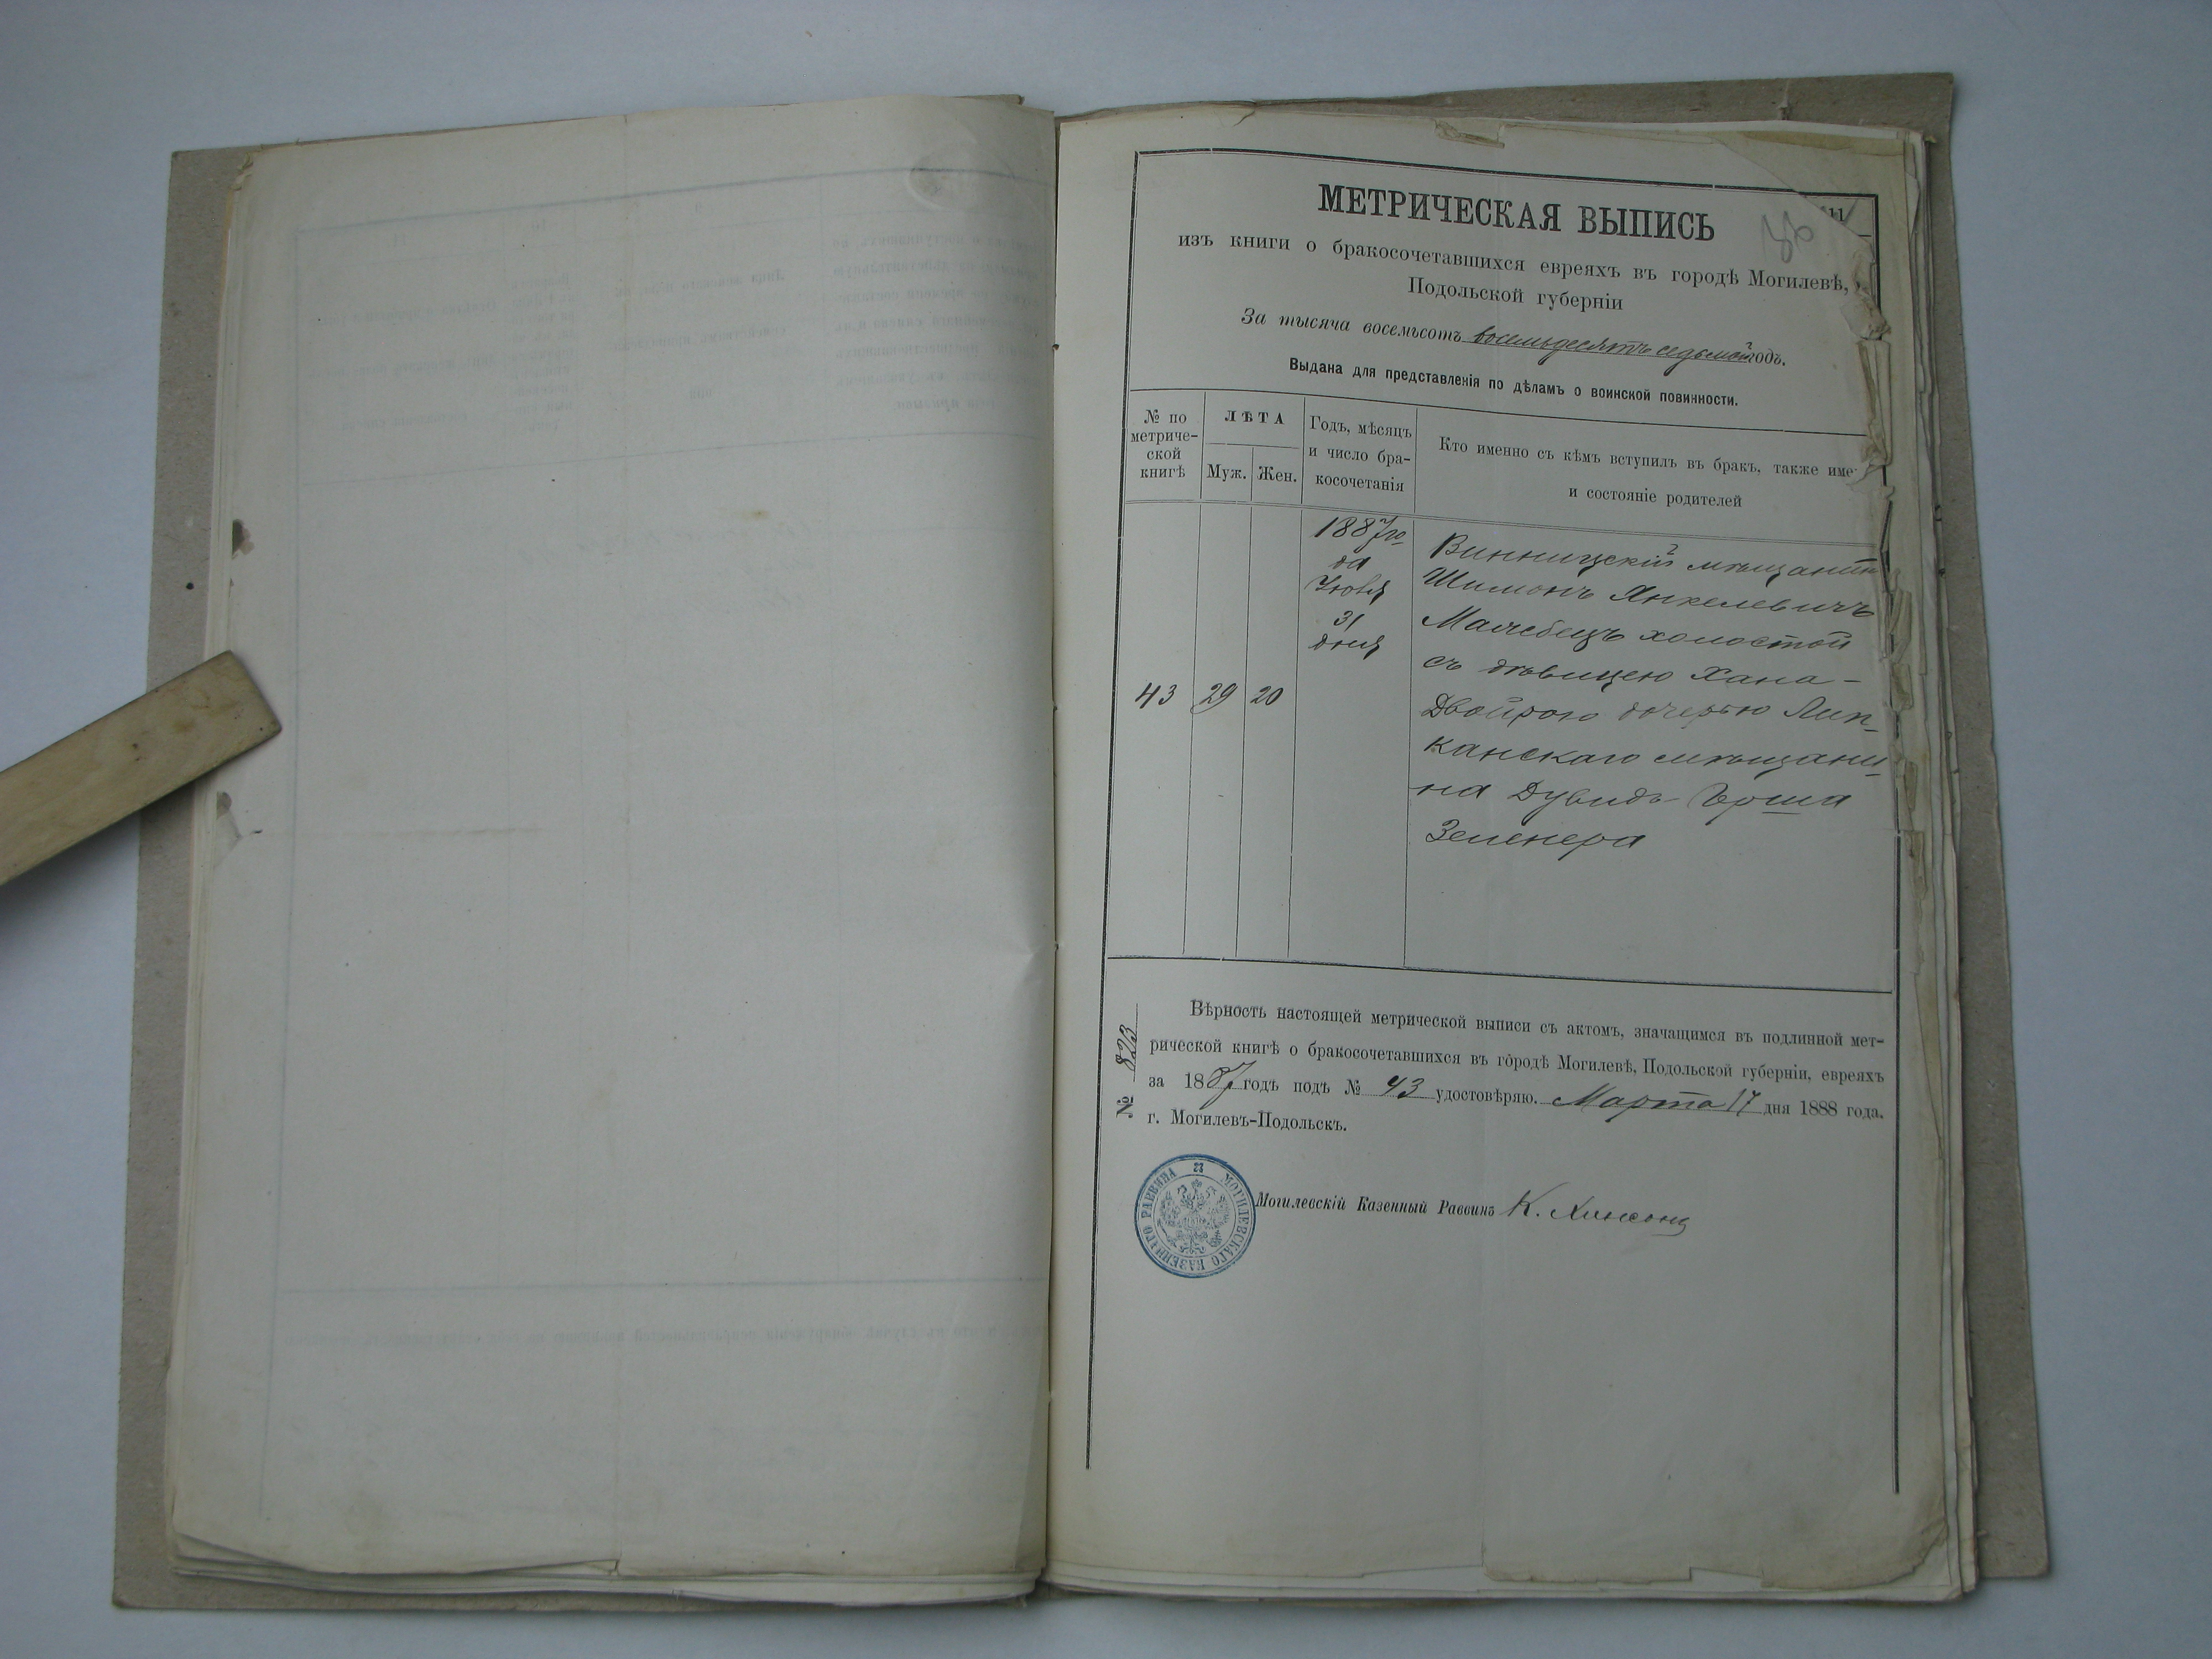 МЕТРИЧЕСКАЯ ВЫПИСЬ
изъ книги о бракосочетавшихся евреяхъ въ городѣ Могилевѣ,
Подольской губерніи
За тысяча восемьсотъ восемьдесятъ седьмой годъ.
Выдана для представленія по дѣламъ о воинской повинности.
№ по метриче-ской книгѣ
ЛѢТА
Муж. Жен.
Годъ, мѣсяцъ
и число бра-
косочетанія
Кто именно съ кѣмъ вступилъ въ бракъ, также име
и состояніе родителей
43 29 20
1887 го-
да
31
дня
Винницскій мѣщанин
Шимонъ Янкелевичъ
холостой
съ дѣвицею Хана-
Двойрою дочерью Лип-
канскаго мѣщани-
на Дувидъ-Герша
Зеленера
№ 823
Вѣрность настоящей метрической выписи съ актомъ, значащимся въ подлинной мет-
рической книгѣ о бракосочетавшихся въ городѣ Могилевѣ, Подольской губерніи, евреяхъ
за 1887 годъ подъ № 43 удостовѣряю. Марта 17 дня 1888 года.
г. Могилевъ-Подольскъ.
Могилевскій Казенный Раввинъ К.
МОГИЛЕВСКАГО КАЗЕННАГО РАВВИНА